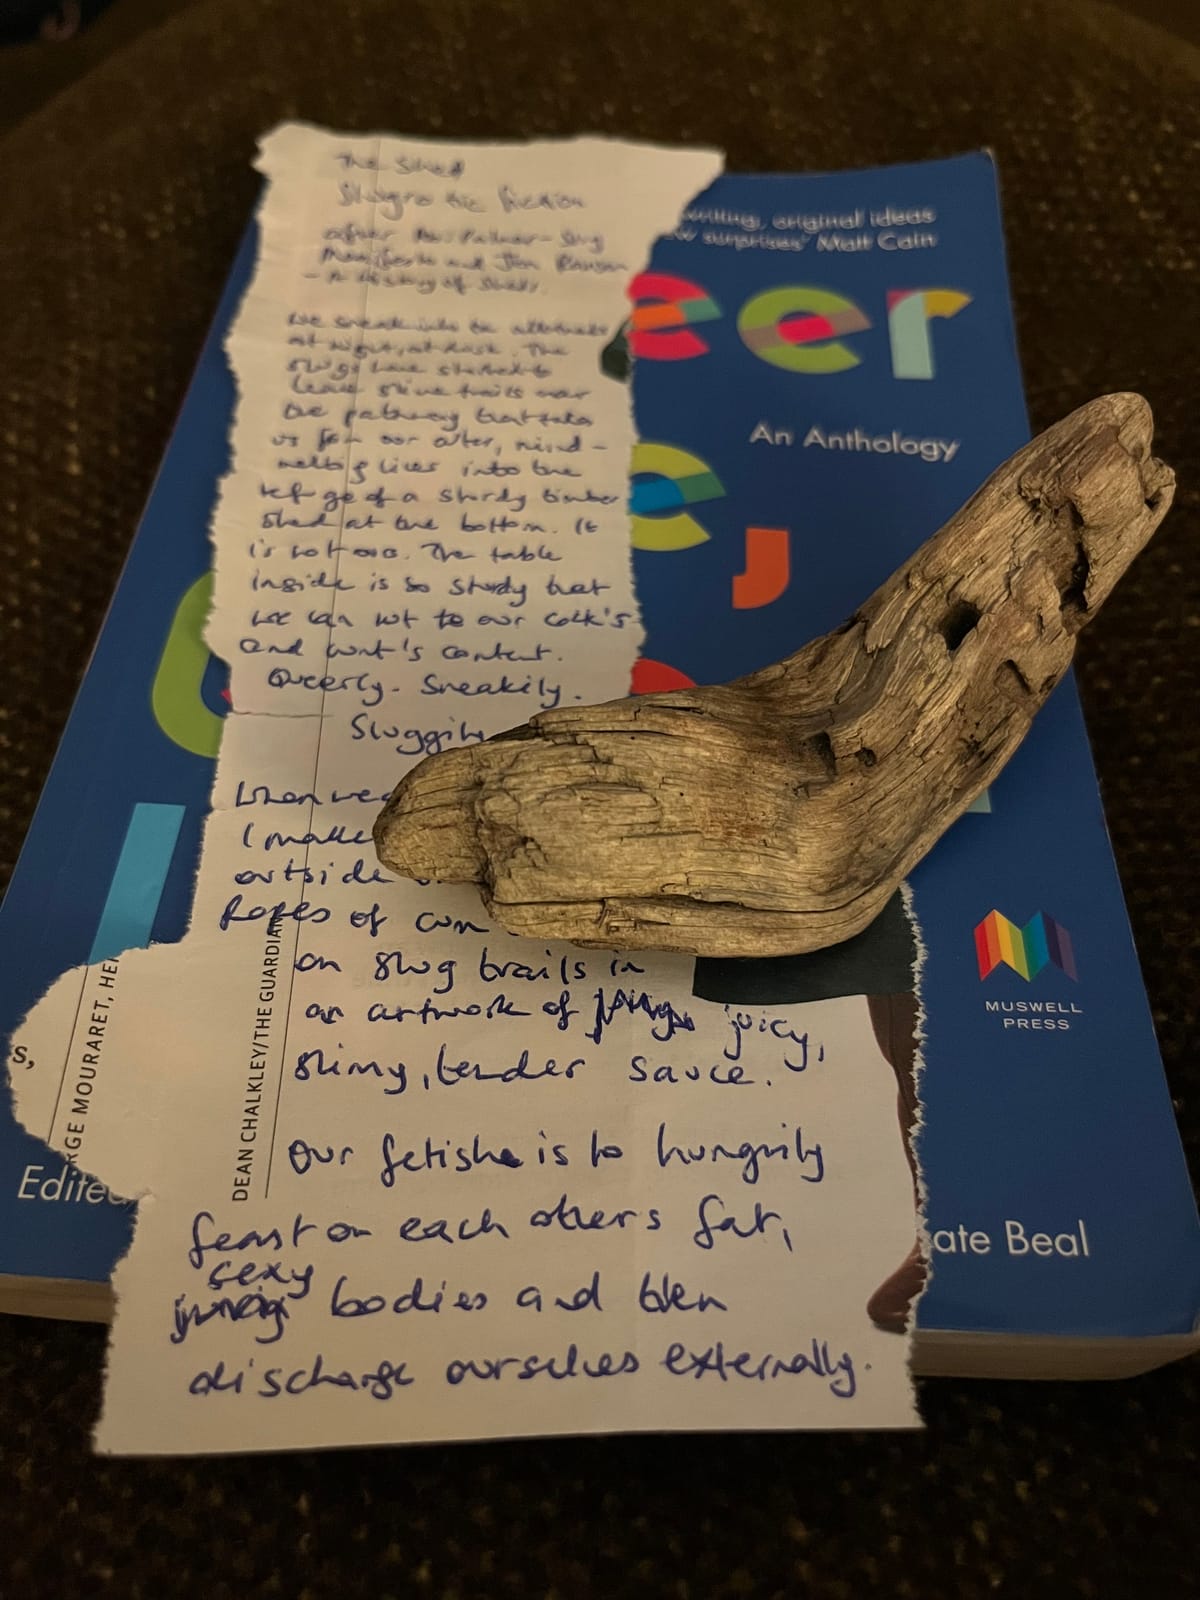 The Shed
Slugrotic fiction
after Abi Palmer - Slug
Manifesto and Jon Ransom
- A history of Sheds.
We sneak into the allotment
at night, at dusk. The
slugs have started to
leave slime trails over
the pathway that takes
us from our outer, mind-
melting lives into the
refuge of a sturdy timber
shed at the bottom. It
is not ours. The table
inside is so sturdy that
we can rut to our cock's
and cunt's content.
Queerly. Sneakily.
Sluggily
When we
I make
outside
Ropes of cum
on slug trails in
an artwork of juicy,
slimy, tender sauce.
Our fetishe is to hungrily
feast on each others fat,
sexy
bodies and then
discharge ourselves externally.
s,
GE MOURARET, HE
DEAN CHALKLEY/THE GUARDIAN
writing, original ideas
surprises' Matt Cain
eer
An Anthology
MUSWELL
PRESS
Edited
ate Beal